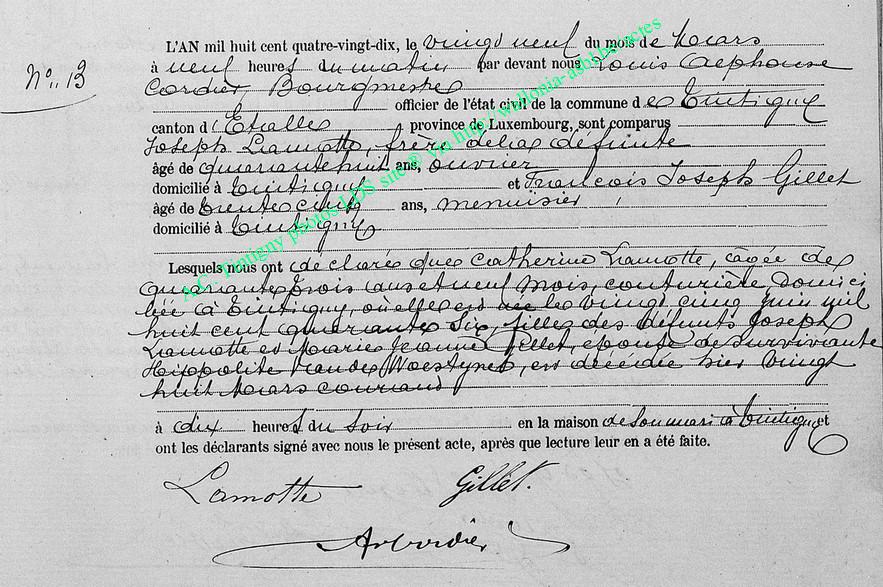 L'AN mil huit cent quatre-vingt-dix, le vingt neuf du mois de Mars
N° 13
à neuf heures du matin par devant nous Louis Alphonse
Cordier Bourgmestre
officier de l'état civil de la commune de Tintigny
canton d'Etalle province de Luxembourg, sont comparus
Joseph Lamotte, frère de la défunte
âgé de quarante huit ans, ouvrier
domicilié à Tintigny et François Joseph Gillet
âgé de trente cinq ans, menuisier
domicilié à Tintigny
Lesquels nous ont déclaré que Catherine Lamotte, âgée de
quarante trois ans et neuf mois, couturière, domici
liée à Tintigny, où elle est née le vingt cinq juin mil
huit cent quarante six, fille des défunts Joseph
Lamotte et Marie Jeanne Gillet, épouse de survivante
Hippolite Vande Woestyne, est décédée hier vingt
huit Mars courant
à dix heures du soir en la maison de son mari à Tintigny et
ont les déclarants signé avec nous le présent acte, après que lecture leur en a été faite.
Lamotte Gillet.
A. Cordier
A.C. Tintigny photos LDS site ® via http://wallonia-asbl.be/actes